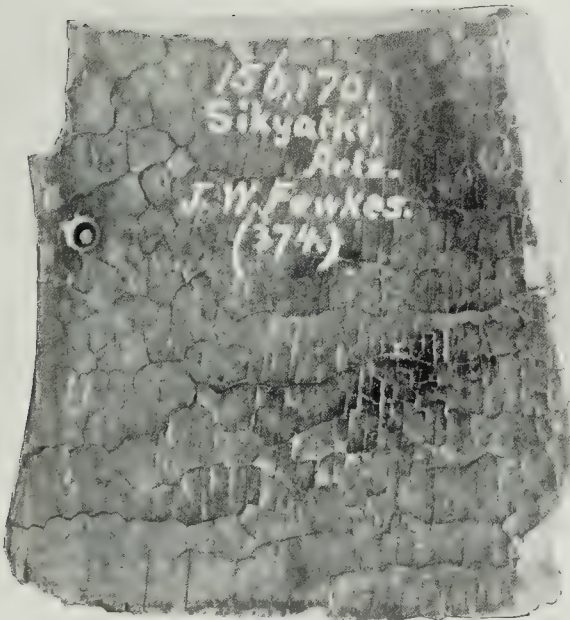 156,170.
Sikyatki,
Ariz.
J.W.Fewkes.
(374)